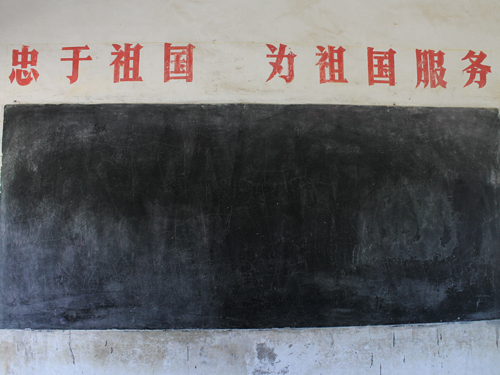 忠于祖国 为祖国服务